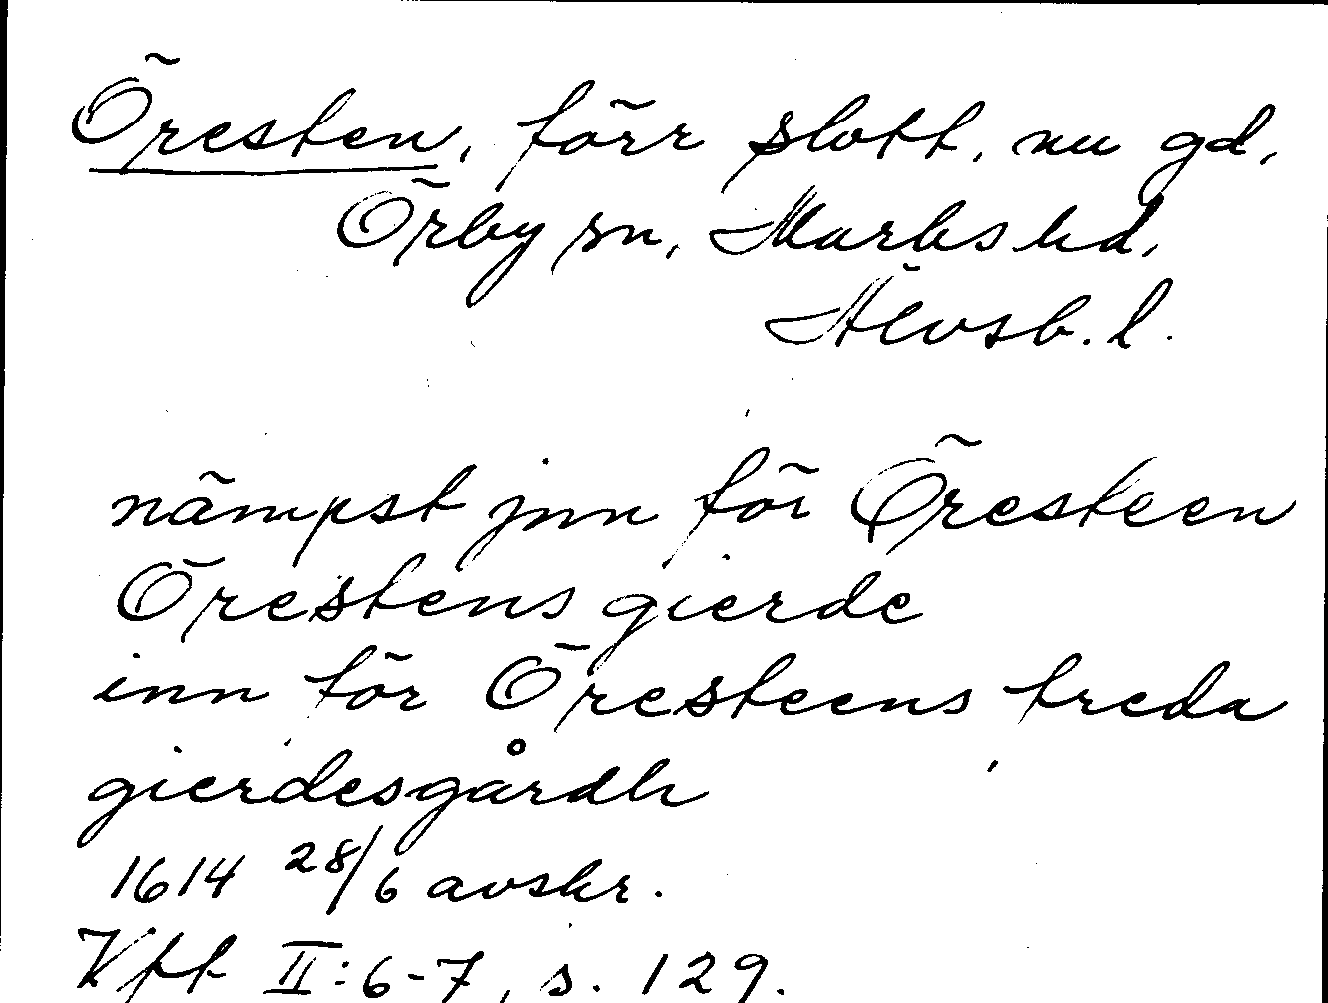 Öresten, förr slott, nu gd,
Örby sn, Marks hd,
Älvsb. l.
nämpst jnn för Öresteen
Örestens gierde
inn för Öresteens treda
gierdesgårdh
1614 28/6 avskr.
Vff II:6-7, s. 129.